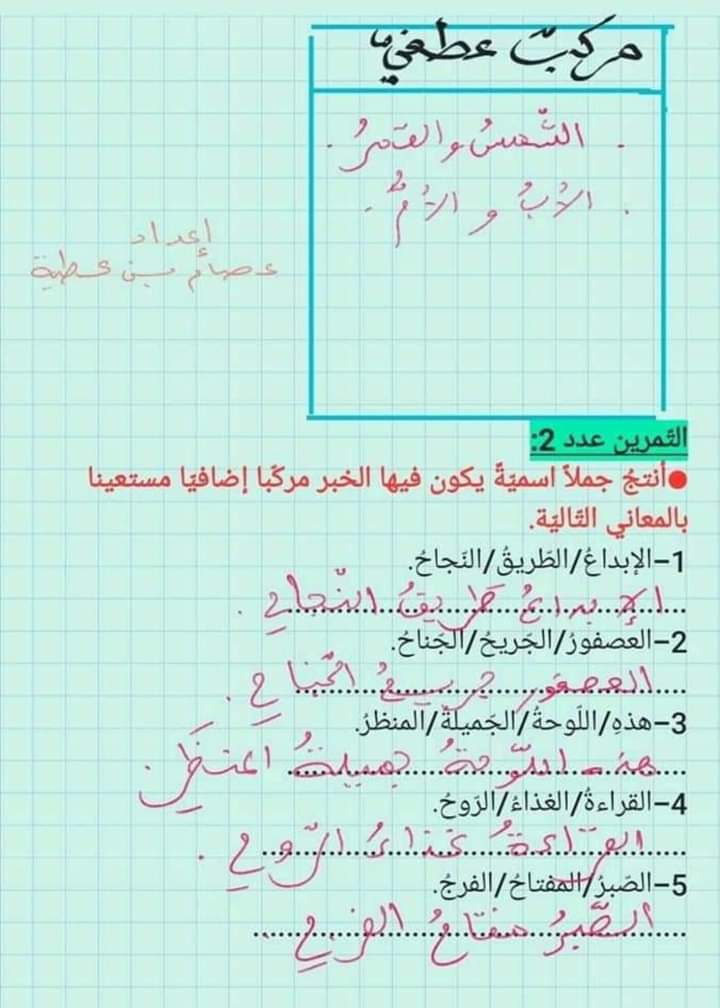 مركبّ عطفيّ
. الشّمسُ والقمرُ .
. الأبُ و الأمُّ .
إعداد
عصام بن عطية
التّمرين عدد 2:
●أنتجُ جملاً اسميّةً يكون فيها الخبر مركّبا إضافيّا مستعينا
بالمعاني التّاليّة.
1–الإبداعُ/الطّريقُ/النّجاحُ.
الإبداعُ طريقُ النّجاحِ .
2–العصفورُ/الجَريحُ/الجَناحُ.
العصفور جريحُ الجناحِ .
3–هذهِ/اللّوحةُ/الجَميلةُ/المنظرُ.
هذه اللّوحةُ جميلةُ المنظَرِ .
4–القراءةُ/الغذاءُ/الرّوحُ.
القراءةُ غذاءُ الرّوحِ .
5–الصّبرُ/المفتاحُ/الفرجُ.
الصَّبرُ مفتاحُ الفرجِ